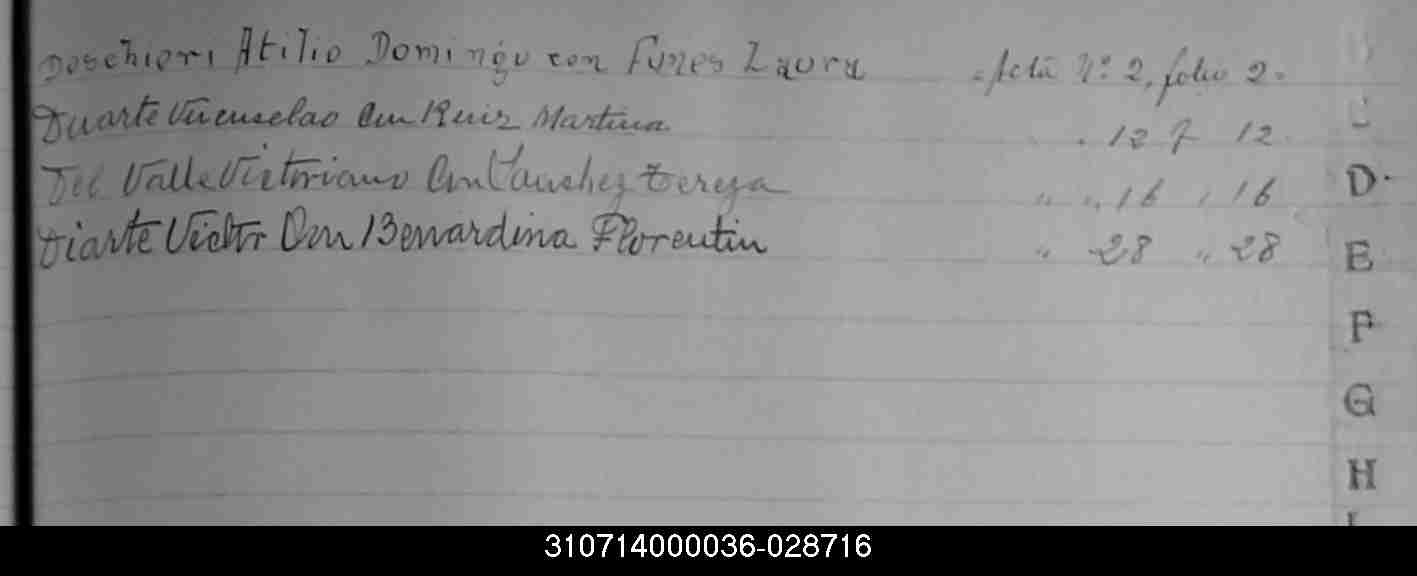 Deschieri Atilio Domingo con Funes Laura Acta Nº 2, folio 2.
Duarte Vicenselao Con Ruiz Martina. " 12 F 12
Del Valle Victoriano Con Sanchez Tereza " " 16 " 16
Diarte Victor Con Bernardina Florentin " 28 " 28
D.
E
F
G
H
310714000036-028716